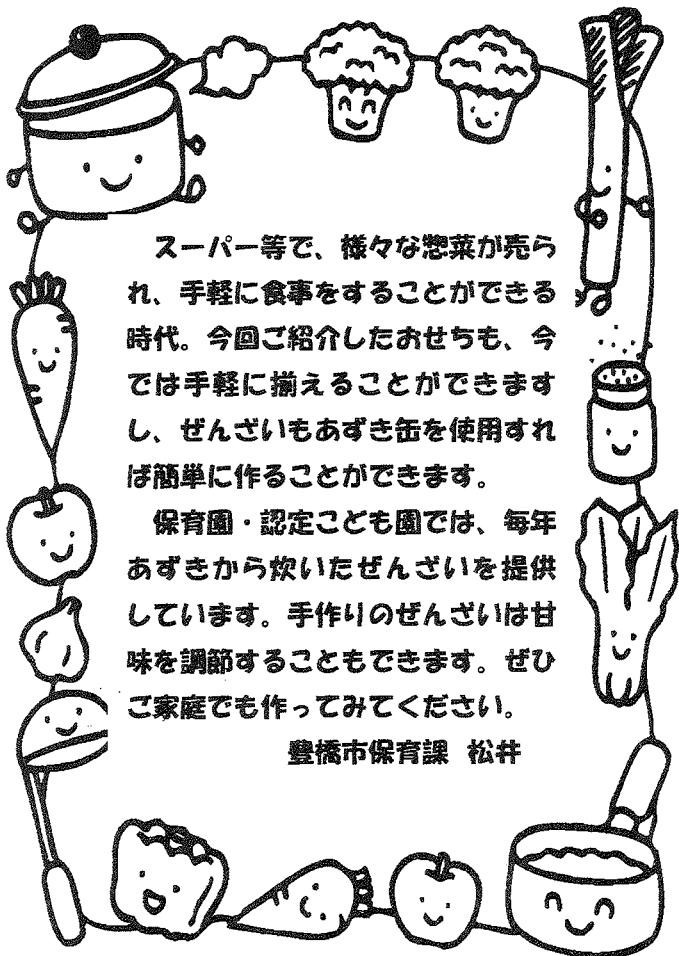 スーパー等で、様々な惣菜が売ら
れ、手軽に食事をすることができる
時代。今回ご紹介したおせちも、今
では手軽に揃えることができます
し、ぜんざいもあずき缶を使用すれ
ば簡単に作ることができます。
保育園・認定こども園では、毎年
あずきから炊いたぜんざいを提供
しています。手作りのぜんざいは甘
味を調節することもできます。ぜひ
ご家庭でも作ってみてください。
豊橋市保育課 松井